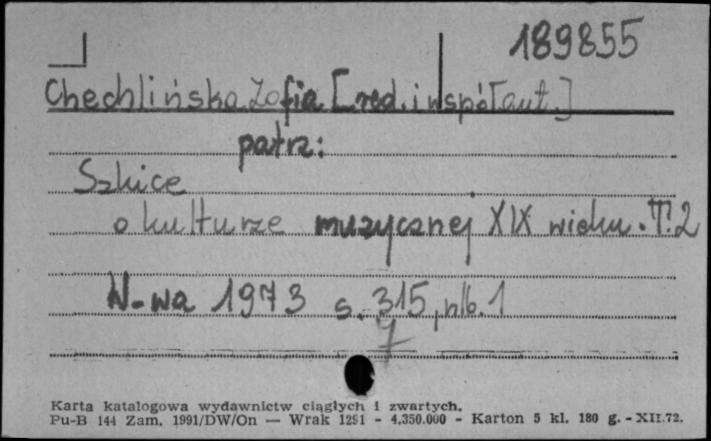 189855
Chechlińska Zofia [red. i współaut.]
patrz:
Szkice
o kulturze muzycznej XIX wieku. T. 2
W-wa 1973 s. 315, nlb. 1
7
Karta katalogowa wydawnictw ciągłych i zwartych.
Pu-B 144 Zam. 1991/DW/On — Wrak 1291 - 4.350.000 - Karton 5 kl. 180 g. - XII.72.